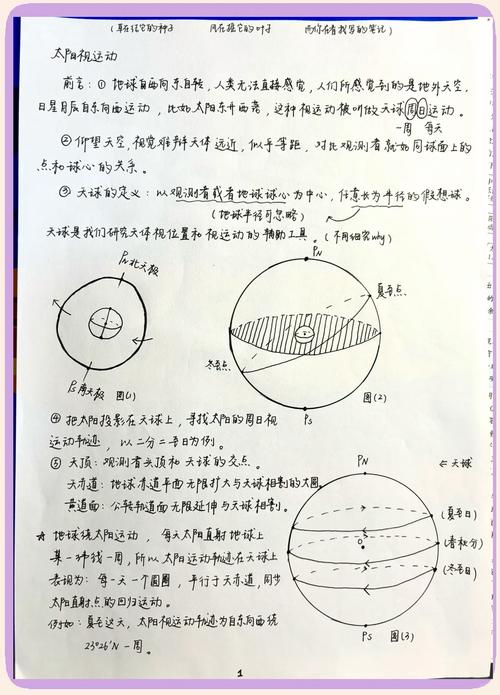 太阳视运动
前言：① 地球自西向东自转，人类无法直接感觉，人们所感觉到的是地外天空，
日星月辰自东向西运动，比如太阳东升西落，这种视运动被叫做天球周日运动。
一周 每天
② 仰望天空，视觉难辨天体远近，似乎等距，对比观测者就如同球面上的
点和球心的关系。
③ 天球的定义：以观测者或者地球球心为中心，任意长为半径的假想球。
（地球半径可忽略）
天球是我们研究天体视位置和视运动的辅助工具。（不用细究why）
PN北天极
Ps南天极 图(1)
PN
夏至点
冬至点
Ps
图(2)
④ 把太阳投影在天球上，寻找太阳的周日视
运动轨迹，以二分二至日为例。
⑤ 天顶：观测者头顶和天球的交点。
天赤道：地球赤道平面无限扩大与天球相割的大圆。
黄道面：公转轨道面无限延伸与天球相割。
☆ 地球绕太阳运动，每天太阳直射地球上
某一纬线一周，所以太阳运动轨迹在天球上
表现为：每一天一个圆圈，平行于天赤道，同步
太阳直射点的回归运动。
例如：夏至这天，太阳视运动轨迹为自东向西绕
23°26′N 一周。
PN
← 天球
(夏至日)
(春秋分)
(冬至日)
O
Ps 图(3)
1